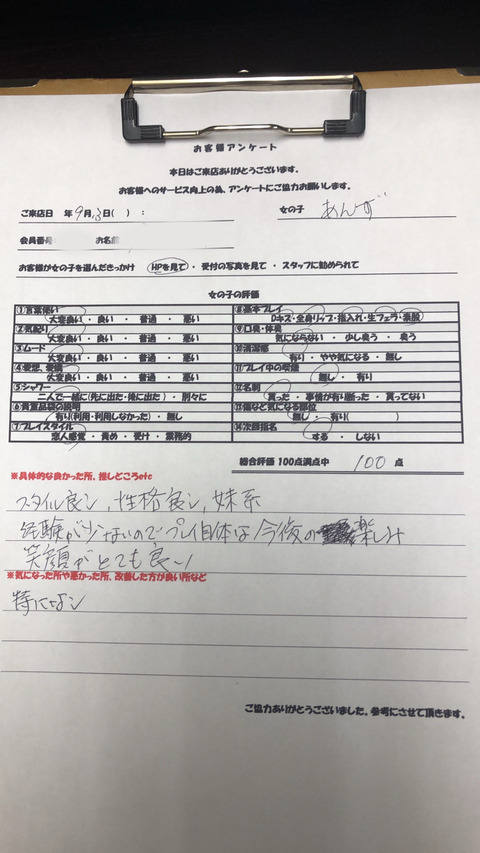 お客様アンケート
本日はご来店ありがとうございます。
お客様へのサービス向上の為、アンケートにご協力お願いします。
ご来店日 年 9月13日( ) : 女の子 あんず
会員番号 お名前
お客様が女の子を選んだきっかけ HPを見て・受付の写真を見て・スタッフに勧められて
女の子の評価
①言葉使い
大変良い・良い・普通・悪い
②気配り
大変良い・良い・普通・悪い
③ムード
大変良い・良い・普通・悪い
④愛想、愛嬌
大変良い・良い・普通・悪い
⑤シャワー
二人で一緒に(先に出た・後に出た)・別々に
⑥貴重品袋の説明
有り(利用・利用しなかった)・無し
⑦プレイスタイル
恋人感覚・責め・受け・業務的
⑧基本プレイ
Dキス・全身リップ・指入れ・生フェラ・素股
⑨口臭・体臭
気にならない・少し臭う・臭う
⑩清潔感
有り・やや気になる・無し
⑪プレイ中の喫煙
無し・有り
⑫名刺
貰った・事情が有り断った・貰ってない
⑬傷など気になる部位
無し・有り( )
⑭次回指名
する・しない
総合評価 100点満点中 100 点
※具体的な良かった所、推しどころetc
スタイル良シ、性格良シ、妹系
経験が少ないのでプレイ自体は今後の楽しみ
笑顔がとても良い
※気になった所や悪かった所、改善した方が良い所など
特になシ
ご協力ありがとうございました。参考にさせて頂きます。